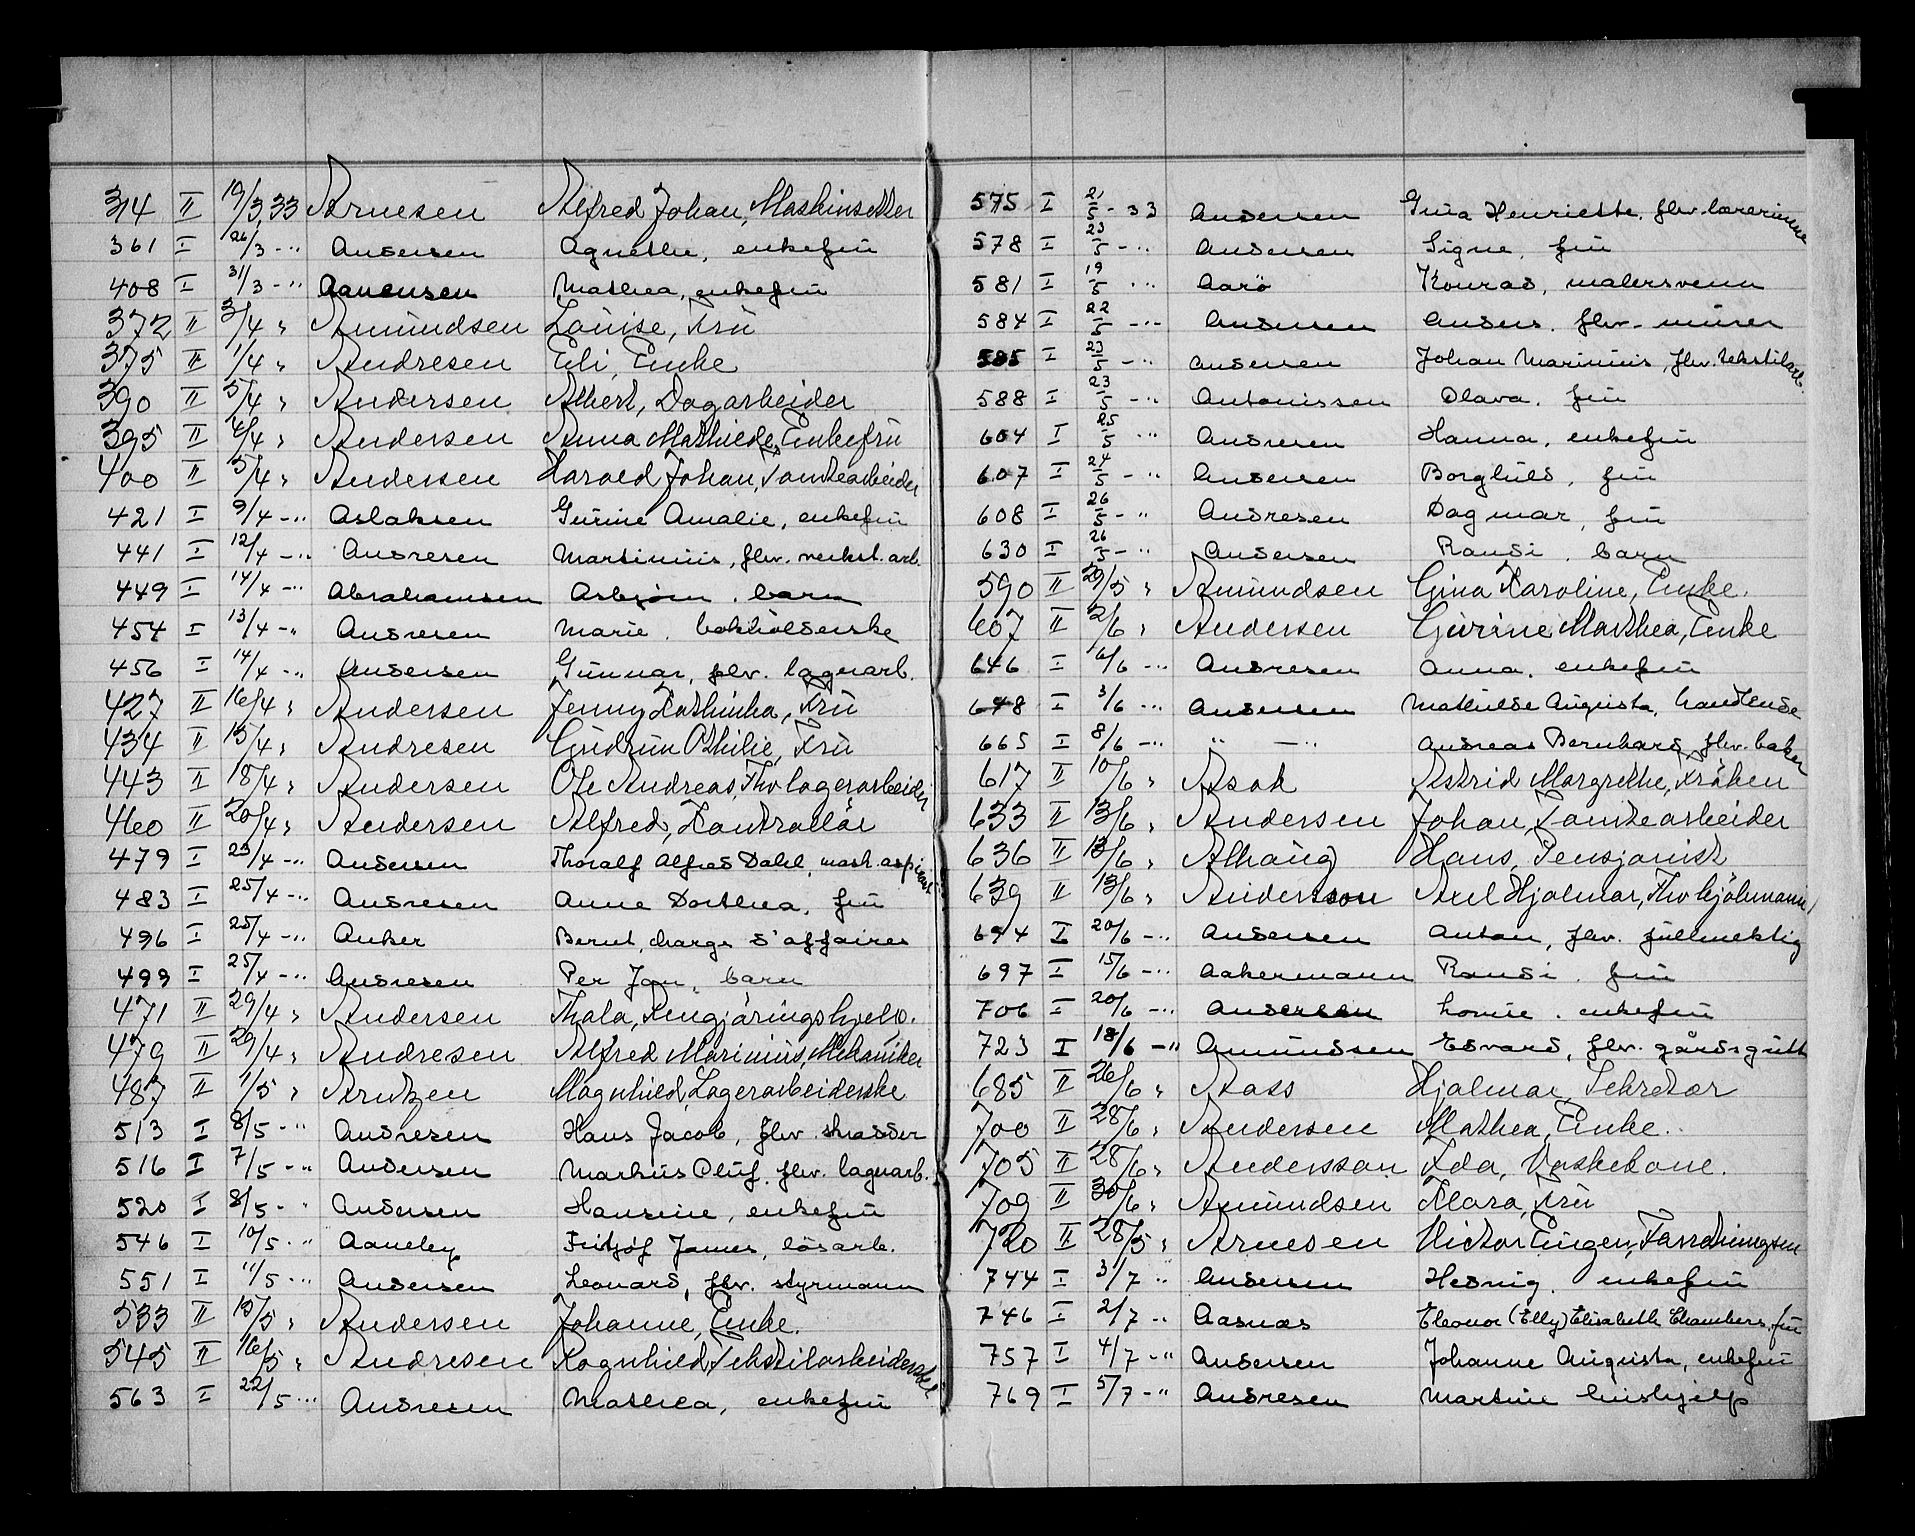 314 II 19/3.33 Arnesen Alfred Johan, Maskinsetter
361 I 26/3 - " Andersen Agnethe, enkefru
408 I 31/3 - " Aanensen Mathea, enkefru
372 II 3/4 " Amundsen Louise, Fru
375 II 1/4 " Andresen Eli, Enke
390 II 5/4 " Andersen Albert, Dagarbeider
395 II 4/4 " Andersen Anna Mathilde, Enkefru
400 II 5/4 " Andersen Harald Johan, Tomtearbeider
421 I 9/4 - " Aslaksen Gurine Amalie, enkefru
441 I 12/4 - " Andresen Martinius, fhv. verkst. arb.
449 I 14/4 - " Abrahamsen Asbjørn, barn
454 I 13/4 - " Andresen Marie, bokholderske
456 I 14/4 - " Andersen Gunnar, fhv. lagerarb.
427 II 16/4 " Andersen Jenny Kathinka, Fru
434 II 15/4 " Andresen Gudrun Othilie, Fru
443 II 18/4 " Andersen Ole Andreas, Fhv lagerarbeider
460 II 20/4 " Andersen Alfred, Kontrollör
479 I 23/4 - " Andersen Thoralf Alfred Dahl, mask. aspirant
483 I 25/4 - " Andresen Anne Dorthea, fru
496 I 25/4 - " Anker Bernt, charge d'affaires
499 I 25/4 - " Andresen Per Jan, barn
471 II 29/4 " Andersen Thala, Rengjöringshjelp.
479 II 29/4 " Andresen Alfred Marinius, Mekaniker
487 II 1/5 " Arntzen Magnhild, Lagerarbeiderske
513 I 8/5 - " Andresen Hans Jacob, fhv. skredder
516 I 7/5 - " Andersen Markus Oluf, fhv. lagerarb.
520 I 8/5 - " Andersen Hansine, enkefru
546 I 10/5 - " Aaneby Fritjof James, løsarb.
551 I 11/5 - " Andersen Leonard, fhv. styrmann
533 II 15/5 " Andersen Johanne, Enke.
545 II 16/5 " Andresen Ragnhild, Tekstilarbeiderske
563 I 22/5 - " Andresen Mathea, enkefru
575 I 21/5 - 33 Andersen Gina Henriette, fhv. lærerinne
578 I 23/5 - " Andersen Signe, fru
581 I 19/5 " Aarö Konrad, malersvenn
584 I 22/5 - " Andersen Anders, fhv. murer
585 I 23/5 - " Andersen Johan Marinius, fhv. tekstilarb.
588 I 23/5 - " Antonissen Olava, fru
604 I 25/5 " Andresen Hanna, enkefru
607 I 24/5 - " Andersen Borghild, fru
608 I 26/5 - " Andresen Dagmar, fru
630 I 26/5 - " Andersen Randi, barn
590 II 29/5 " Amundsen Gina Karoline, Enke.
607 II 2/6 " Andersen Gurine Marthea, Enke
646 I 6/6 - " Andresen Anna, enkefru
648 I 3/6 - " Andersen Mathilde Augusta, handlende
665 I 8/6 - " " - " Andreas Bernhard, fhv. baker
617 II 10/6 " Asak Astrid Margrethe, Fröken
633 II 13/6 " Andersen Johan, Tomtearbeider
636 II 13/6 " Alhaug Hans, Pensjonist
639 II 13/6 " Andersson Axel Hjalmar, Fhv Sjömann
694 I 20/6 - " Andersen Anton, fhv. fullmektig
697 I 15/6 - " Aakermann Randi, fru
706 I 20/6 - " Andersen Louise, enkefru
723 I 18/6 - " Amundsen Edvard, fhv. gårdsgutt
685 II 26/6 " Aass Hjalmar, Sekretær
700 II 28/6 " Andersen Mathea, Enke.
705 II 28/6 " Andersson Ida, Vaskekone.
709 II 30/6 " Amundsen Klara, Fru
720 II 28/5 " Arnesen Victor Eugen, Forretningsm
744 I 3/7 " Andersen Hedvig, enkefru
746 I 2/7 " Aasnæs Eleonor (Elly) Elisabeth Chambers, fru
757 I 4/7 - " Andersen Johanne Augusta, enkefru
769 I 5/7 - " Andresen Martine hushjelp